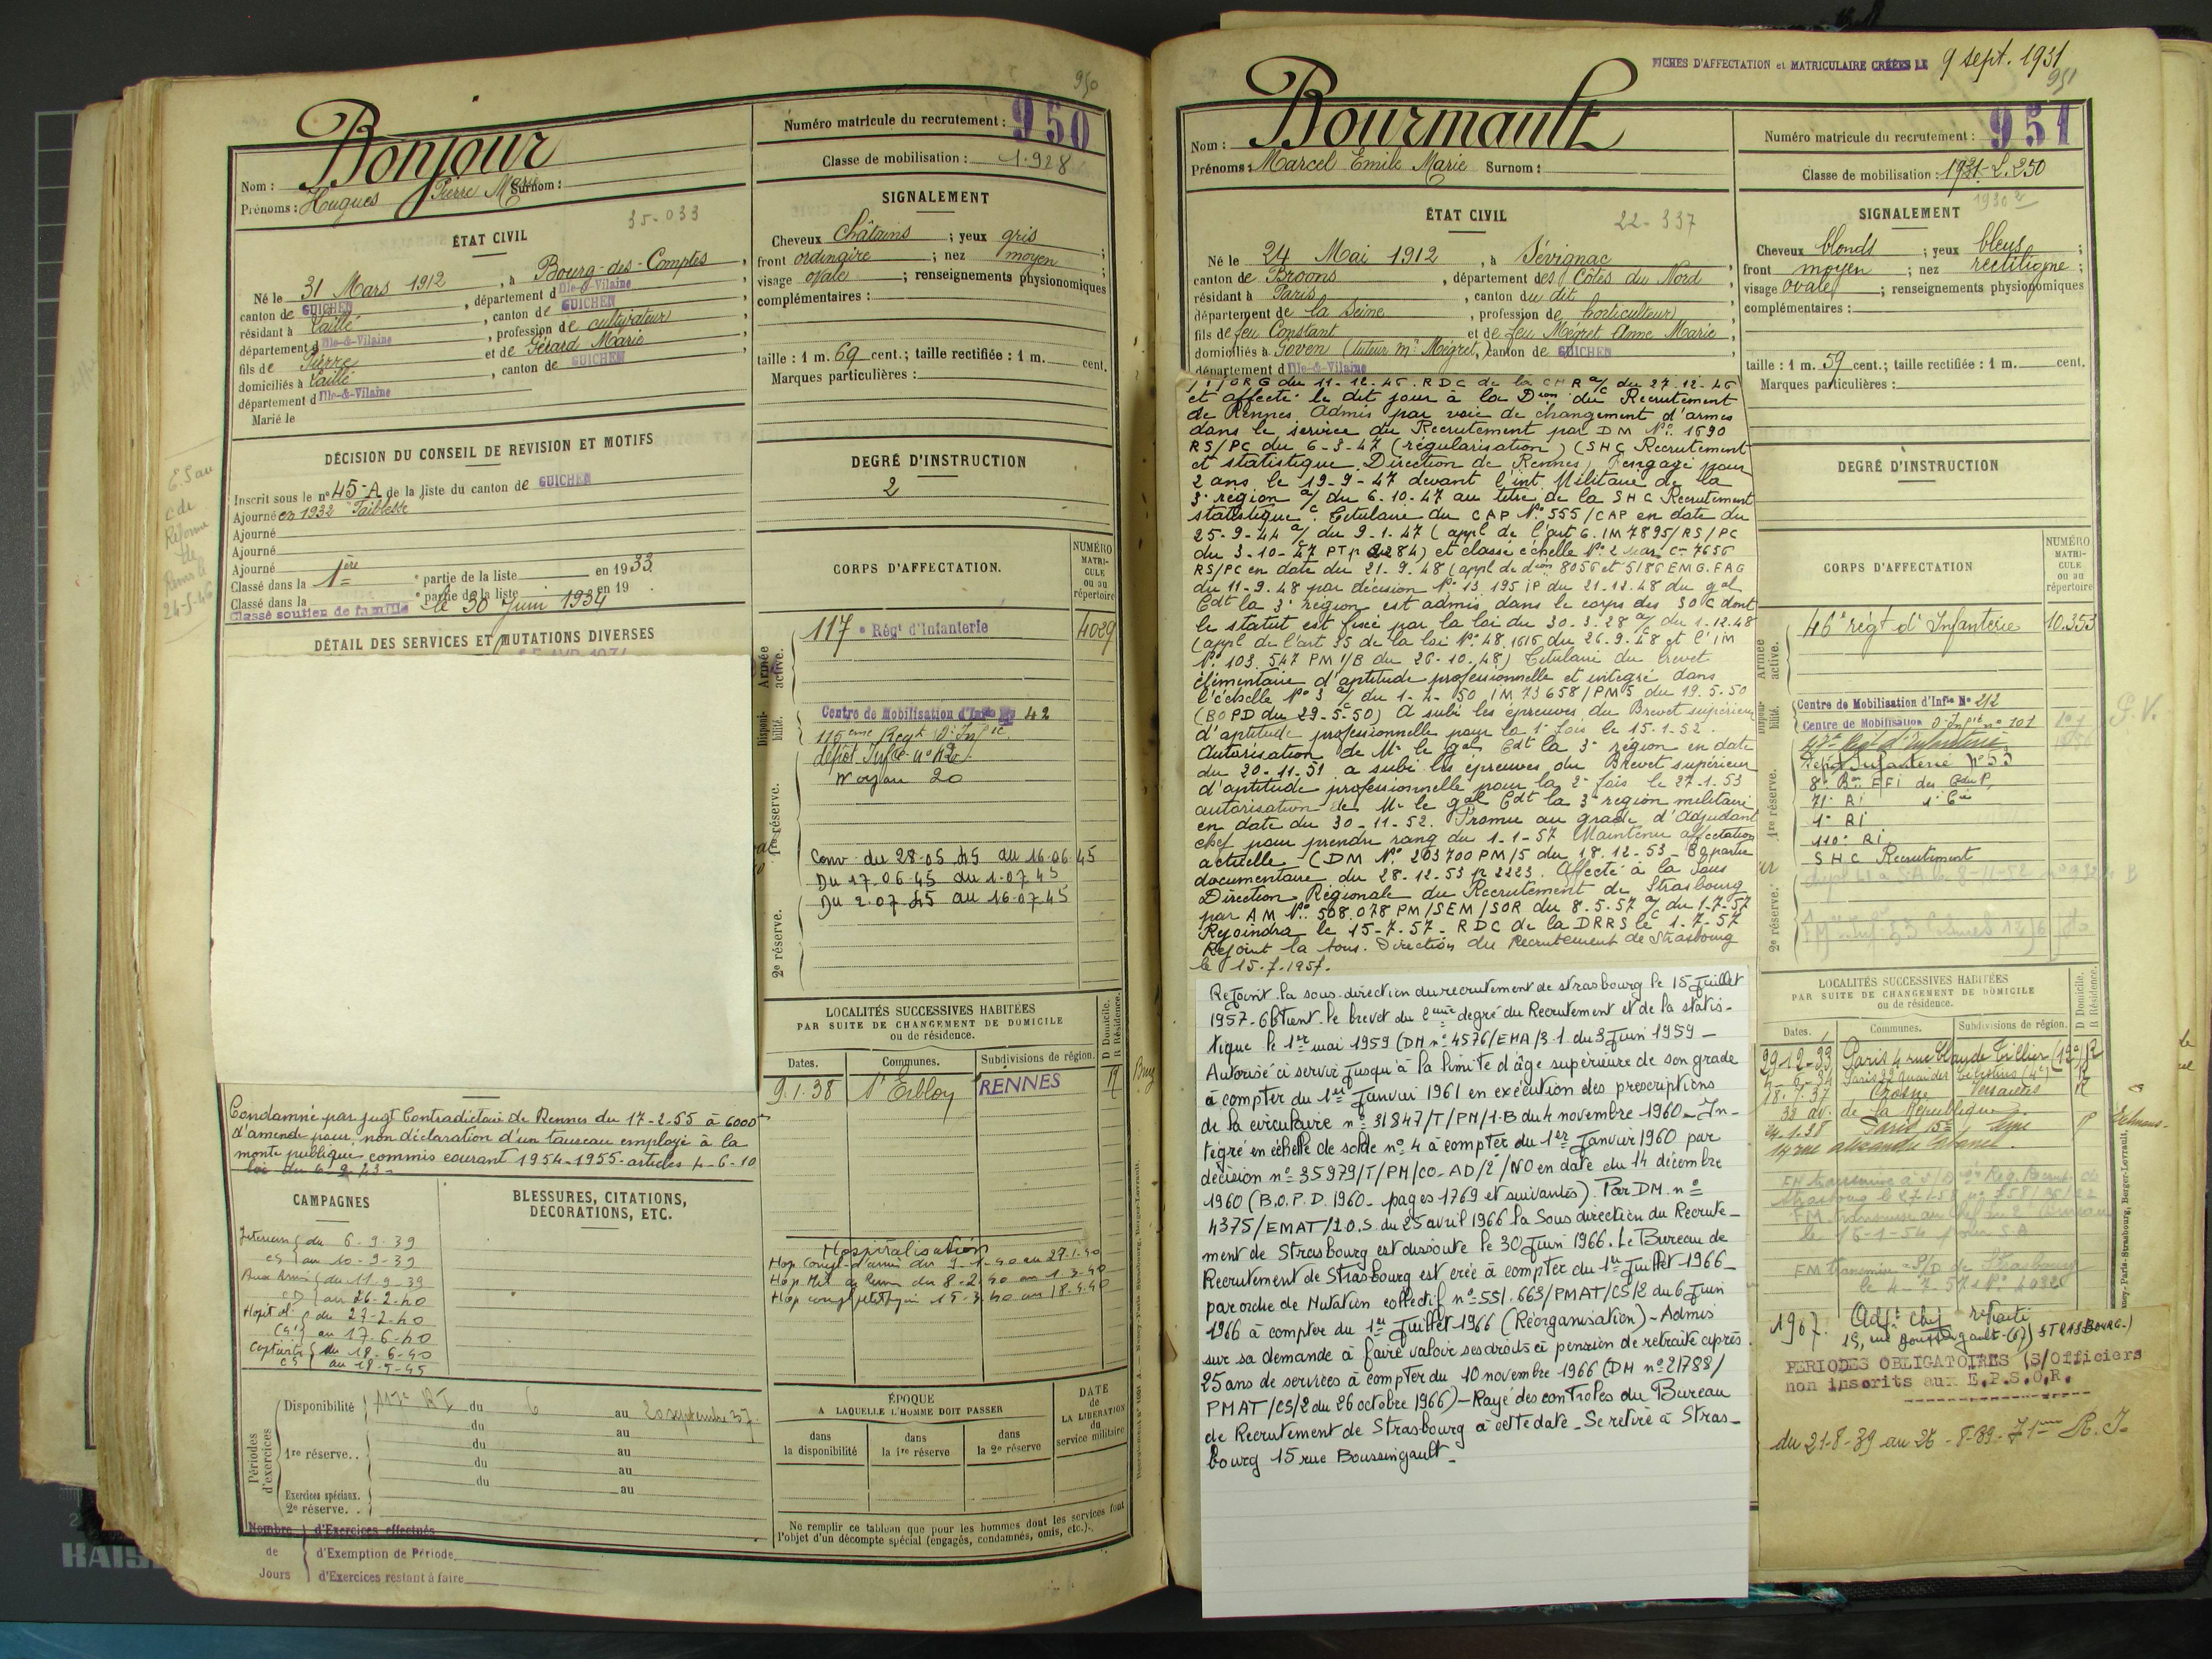 950
Bonjour
Nom :
Prénoms : Hugues Pierre Marie Surnom :
35-033
ÉTAT CIVIL
Né le 31 Mars 1912, à Bourg-des-Comptes,
canton de GUICHEN, département d'Ille-&-Vilaine
résidant à Laillé, canton de GUICHEN
département d'Ille-&-Vilaine, profession de cultivateur
fils de Pierre et de Gérard Marie
domiciliés à Laillé, canton de GUICHEN
département d'Ille-&-Vilaine
Marié le
DÉCISION DU CONSEIL DE REVISION ET MOTIFS
Inscrit sous le n° 45-A de la liste du canton de GUICHEN
Ajourné en 1932 "Faiblesse"
Ajourné
Ajourné
Ajourné
Classé dans la 1ère partie de la liste en 1933
Classé dans la partie de la liste en 19
Classé soutien de famille le 30 Juin 1934
DÉTAIL DES SERVICES ET MUTATIONS DIVERSES
Réforme
24-5-46
Condamné par jugt Contradictoire de Rennes du 17-2-55 à 6000
d'amende pour non déclaration d'un taureau employé à la
monte publique commis courant 1954-1955- articles 4-6-10
loi du 6-9-43-
CAMPAGNES
Intérieur du 6-9-39
CS au 10-9-39
Aux Armées du 11-9-39
CD au 26-2-40
du 27-2-40
au 17-6-40
Captivité du 18-6-40
CS au 18-5-45
BLESSURES, CITATIONS,
DÉCORATIONS, ETC.
Périodes d'exercices
Disponibilité 117e RI du 6 au 20 septembre 37.
du au
1re réserve. . du au
du au
Exercices spéciaux. du au
2e réserve. .
Nombre d'Exercices effectués
de d'Exemption de Période
Jours d'Exercices restant à faire
Numéro matricule du recrutement : 950
Classe de mobilisation : 1.928
SIGNALEMENT
Cheveux Châtains ; yeux gris ;
front ordinaire ; nez moyen ;
visage ovale ; renseignements physionomiques
complémentaires :
taille : 1 m. 69 cent.; taille rectifiée : 1 m. cent.
Marques particulières :
DEGRÉ D'INSTRUCTION
2
CORPS D'AFFECTATION.
NUMÉRO
MATRI-
CULE
ou au
répertoire
Armée active.
117e Régt d'Infanterie 4029
Disponibilité.
Centre de Mobilisation d'Infie No 42
115eme Regt d'Infie
dépôt Infie n° 42
1re réserve.
Conv du 28-05 45 au 16-06 45
Du 17.06 45 au 1.07 45
Du 2.07 45 au 16.07 45
2e réserve.
LOCALITÉS SUCCESSIVES HABITÉES
PAR SUITE DE CHANGEMENT DE DOMICILE
ou de résidence.
D Domicile.
R Résidence.
Dates. Communes. Subdivisions de région.
9.1.38 St Erblon RENNES R
Hospitalisation
ÉPOQUE
A LAQUELLE L'HOMME DOIT PASSER
dans la disponibilité
dans la 1re réserve
dans la 2e réserve
DATE de LA LIBÉRATION du service militaire
Ne remplir ce tableau que pour les hommes dont les services font
l'objet d'un décompte spécial (engagés, condamnés, omis, etc.).
FICHES D'AFFECTATION et MATRICULAIRE CRÉÉES LE 9 sept. 1931
951
Nom : Bourmault
Prénoms : Marcel Emile Marie Surnom :
ÉTAT CIVIL
22-337
Né le 24 Mai 1912, à Sévignac
canton de Broons, département des Côtes du Nord
résidant à Paris, canton du dit
département de la Seine, profession de horticulteur
fils de feu Constant et de feu Mégret Anne Marie
domiciliés à Goven (tuteur Mr Mégret, canton de GUICHEN
département d'Ille-&-Vilaine
ORG du 11-12-46. RDC de la CHR a/c du 27.12-46
et affecté le dit jour à la Dion du Recrutement
de Rennes. Admis par voie de changement d'armes
dans le service du Recrutement par DM N° 1690
RS/PC du 6-3-47 (régularisation) (SHC Recrutement
et statistique Direction de Rennes. Rengagé pour
2 ans le 19-9-47 devant l'int. Militaire de la
3e région a/c du 6.10.47 au titre de la SHC Recrutement
statistique. Titulaire du CAP N° 555/CAP en date du
25-9-44 a/c du 9-1-47 (appl de l'art 6. IM 7895/RS/PC
du 3-10-47 PT p 2284) et classé échelle N° 2
RS/PC en date du 21.9.48 (appl de dion 8056 et 5186 EMG.FAG
du 11-9.48 par décision N° 13 195 iP du 21.12.48 du gal
Cdt la 3e région est admis dans le corps des SOC dont
le statut est fixé par la loi du 30.3.28 a/c du 1.12.48
(appl de l'art 35 de la loi N° 48.1616 du 26.9.48 et l'IM
N° 103.547 PM 1/B du 26-10.48) Titulaire du brevet
élémentaire d'aptitude professionnelle et intégré dans
l'échelle N° 3 a/c du 1-1-50 IM 73658/PM5 du 19.5-50
(BOPD du 29-5-50) A subi les épreuves du Brevet supérieur
d'aptitude professionnelle pour la 1e fois le 15-1-52.
Autorisation de Mr le gal Cdt la 3e région en date
du 20-11-51 a subi les épreuves du Brevet supérieur
d'aptitude professionnelle pour la 2e fois le 27-1-53
autorisation de Mr le gal Cdt la 3e région militaire
en date du 30-11-52. Promu au grade d'Adjudant
chef pour prendre rang du 1-1-57 Maintenu affectation
actuelle (DM N° 203700 PM/5 du 18.12-53 - BO partie
documentaire du 28-12-53 p 2223. Affecté à la Sous
Direction Régionale du Recrutement de Strasbourg
par AM N° 508.078 PM/SEM/SOR du 8.5-57 a/c du 1-7-57
Rejoindra le 15-7-57 - RDC de la DRRS le 1-7-57
Rejoint la Sous-Direction du Recrutement de Strasbourg
le 15-7-1957.
Rejoint la sous-direction du recrutement de strasbourg le 15 Juillet
1957-Obtient le brevet du 2eme degré du Recrutement et de la statis-
tique le 1er mai 1959 (DM n° 4576/EMA/3.1. du 3 Juin 1959 -
Autorisé à servir jusqu'à la limite d'âge supérieure de son grade
à compter du 1er Janvier 1961 en exécution des prescriptions
de la circulaire n° 31847/T/PM/1.B du 4 novembre 1960 - In-
tégré en échelle de solde n° 4 à compter du 1er Janvier 1960 par
décision n° 35979/T/PM/CO-AD/2/NO en date du 14 décembre
1960 (B.O.P.D. 1960 - pages 1769 et suivantes). Par DM. n°
4375/EMAT/1.O.S. du 25 avril 1966 la Sous direction du Recrute-
ment de Strasbourg est dissoute le 30 Juin 1966. Le Bureau de
Recrutement de Strasbourg est créé à compter du 1er Juillet 1966 -
par ordre de Mutation collectif n° 551.663/PMAT/CS/2 du 6 Juin
1966 à compter du 1er Juillet 1966 (Réorganisation) - Admis
sur sa demande à faire valoir ses droits à pension de retraite après
25 ans de services à compter du 10 novembre 1966 (DM n° 21788/
PMAT/CS/2 du 26 octobre 1966) - Rayé des contrôles du Bureau
de Recrutement de Strasbourg à cette date - Se retire à Stras-
bourg 15 rue Boussingault -
Numéro matricule du recrutement : 951
Classe de mobilisation : 1931-
SIGNALEMENT
Cheveux blonds ; yeux bleus ;
front moyen ; nez rectiligne ;
visage ovale ; renseignements physionomiques
complémentaires :
taille : 1 m. 59 cent.; taille rectifiée : 1 m. cent.
Marques particulières :
DEGRÉ D'INSTRUCTION
CORPS D'AFFECTATION
NUMÉRO
MATRI-
CULE
ou au
répertoire
46e régt d'Infanterie 10.353
Centre de Mobilisation d'Infie No 212
Centre de Mobilisation d'Infie n° 101
Dépôt Infanterie N° 53
8e Bon FFI des Cdu N.
71e RI 1e Cie
4e RI
110e RI
SHC Recrutement
LOCALITÉS SUCCESSIVES HABITÉES
PAR SUITE DE CHANGEMENT DE DOMICILE
ou de résidence.
D Domicile.
R Résidence.
Dates. Communes. Subdivisions de région.
29-12-33 Paris 4 rue Claude Tillier (12e) R
Paris 22 quai des Célestins (4e) R
18.7.37 Crosne Versailles R
32 av. de la République
24.1.38 Paris 15e
14 rue Alexandre Cabanel
1967. Adjt chef retraité
15, rue Boussingault (67) STRASBOURG.)
PERIODES OBLIGATOIRES (S/Officiers
non inscrits aux E.P.S.O.R.
du 21-8-39 au 26-8-39- 71eme R.I.